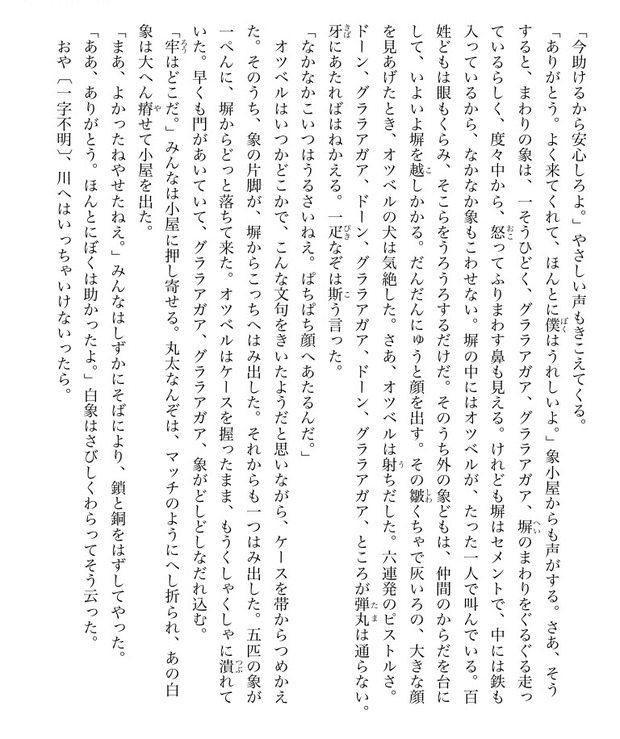 「今助けるから安心しろよ。」やさしい声もきこえてくる。
「ありがとう。よく来てくれて、ほんとに僕はうれしいよ。」象小屋からも声がする。さあ、そう
すると、まわりの象は、一そうひどく、グララアガア、グララアガア、塀のまわりをぐるぐる走っ
ているらしく、度々中から、怒ってふりまわす鼻も見える。けれども塀はセメントで、中には鉄も
入っているから、なかなか象もこわせない。塀の中にはオツベルが、たった一人で叫んでいる。百
姓どもは眼もくらみ、そこらをうろうろするだけだ。そのうち外の象どもは、仲間のからだを台に
して、いよいよ塀を越しかかる。だんだんにゅうと顔を出す。その皺くちゃで灰いろの、大きな顔
を見あげたとき、オツベルの犬は気絶した。さあ、オツベルは射ちだした。六連発のピストルさ。
ドーン、グララアガア、ドーン、グララアガア、ドーン、グララアガア、ところが弾丸は通らない。
牙にあたればはねかえる。一疋なぞは斯う言った。
「なかなかこいつはうるさいねえ。ぱちぱち顔へあたるんだ。」
オツベルはいつかどこかで、こんな文句をきいたようだと思いながら、ケースを帯からつめかえ
た。そのうち、象の片脚が、塀からこっちへはみ出した。それからも一つはみ出した。五匹の象が
一ぺんに、塀からどっと落ちて来た。オツベルはケースを握ったまま、もうくしゃくしゃに潰れて
いた。早くも門があいていて、グララアガア、グララアガア、象がどしどしなだれ込む。
「牢はどこだ。」みんなは小屋に押し寄せる。丸太なんぞは、マッチのようにへし折られ、あの白
象は大へん瘠せて小屋を出た。
「まあ、よかったねやせたねえ。」みんなはしずかにそばにより、鎖と銅をはずしてやった。
「ああ、ありがとう。ほんとにぼくは助かったよ。」白象はさびしくわらってそう云った。
おや〔一字不明〕、川へはいっちゃいけないったら。